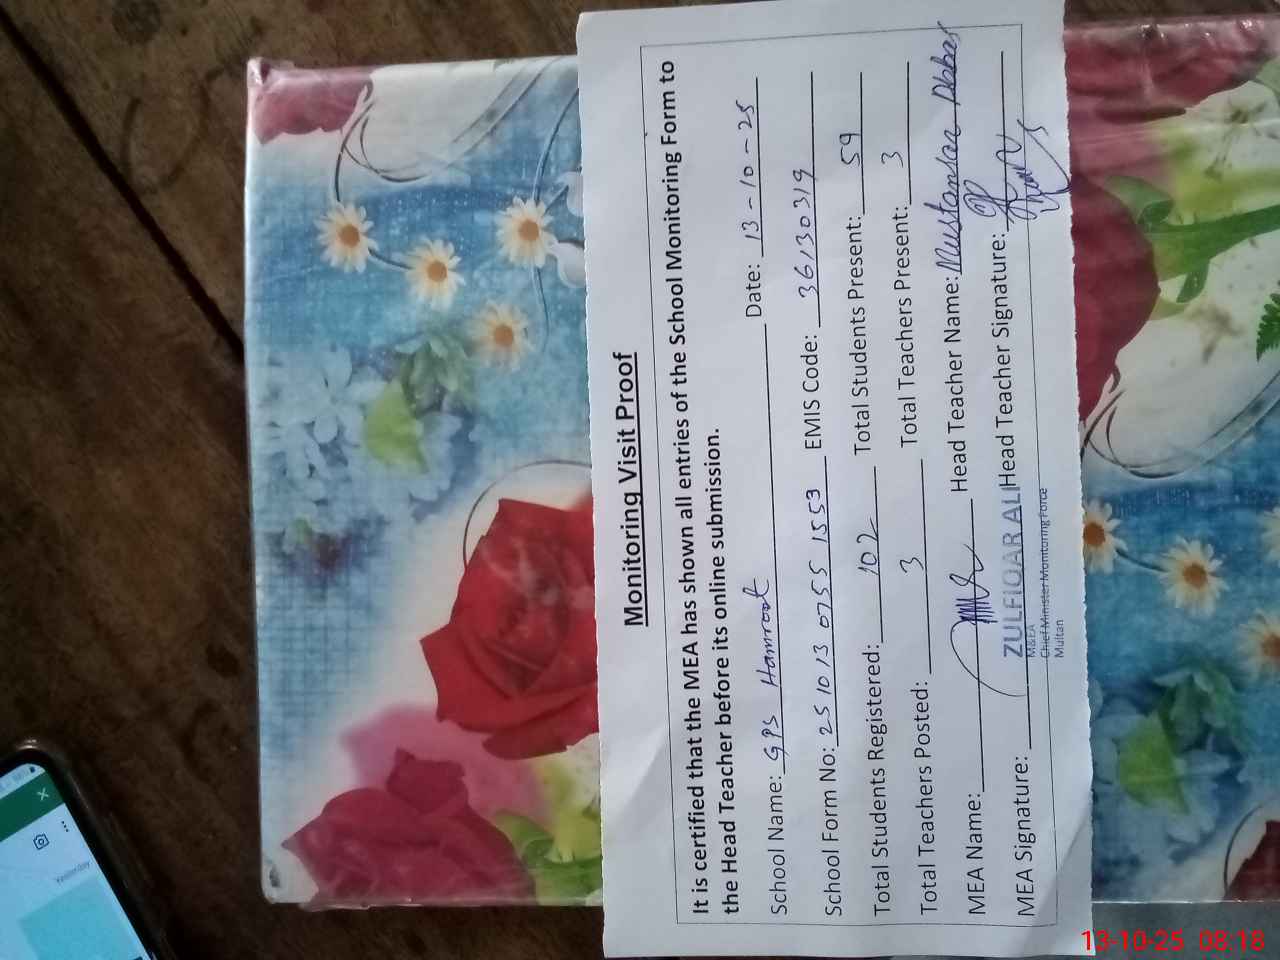 Monitoring Visit Proof
It is certified that the MEA has shown all entries of the School Monitoring Form to
the Head Teacher before its online submission.
School Name: GPS Hamroot Date: 13-10-25
School Form No: 25 10 13 0755 1553 EMIS Code: 36130319
Total Students Registered: 102 Total Students Present: 59
Total Teachers Posted: 3 Total Teachers Present: 3
MEA Name: Head Teacher Name: Mustansar Abbas
MEA Signature: ZULFIQAR ALI Head Teacher Signature:
M&EA
Chief Minister Monitoring Force
Multan
Yesterday
13-10-25 08:18